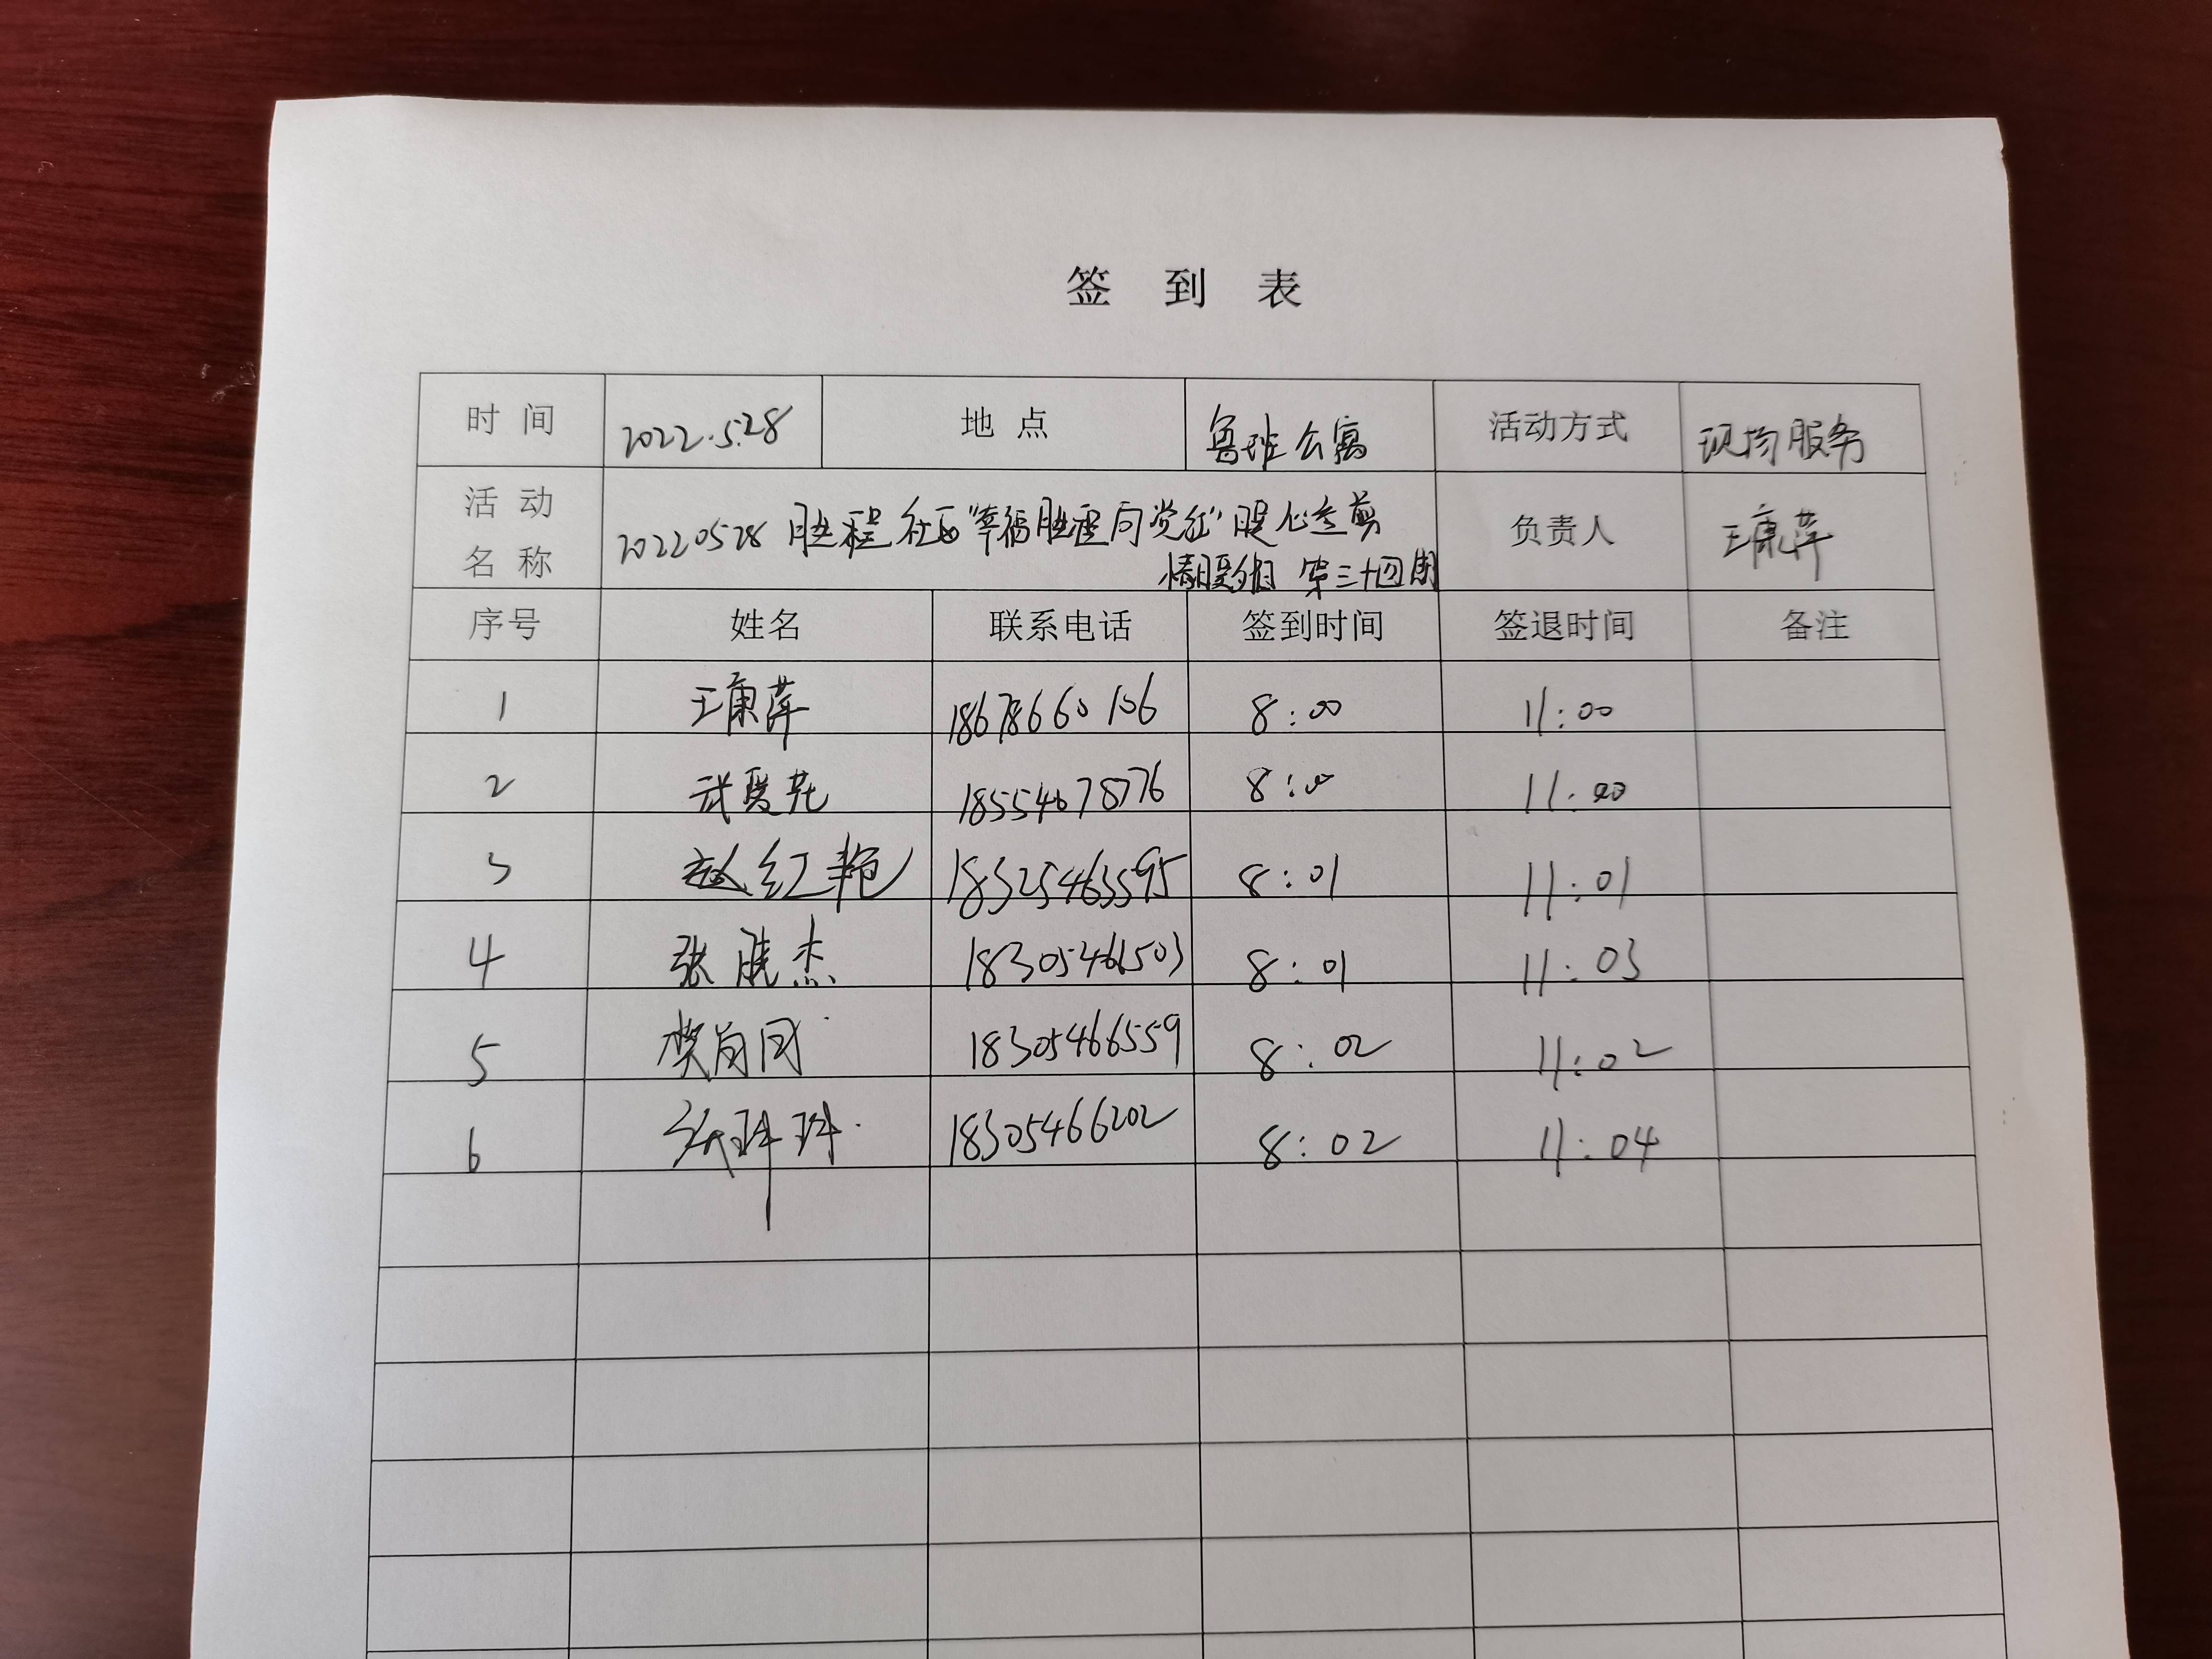 签 到 表
时 间 2022.5.28 地 点 鲁班公寓 活动方式 现场服务
活 动 名 称 20220528 胜程社区“幸福胜程向党征”暖心义剪 负责人 王康萍
情暖夕阳 第三十四期
序号 姓名 联系电话 签到时间 签退时间 备注
1 王康萍 18678660106 8:00 11:00
2 武爱花 18554678776 8:00 11:00
3 赵红艳 18325463595 8:01 11:01
4 张晓杰 18305461503 8:01 11:03
5 18305466559 8:02 11:02
6 18305466202 8:02 11:04